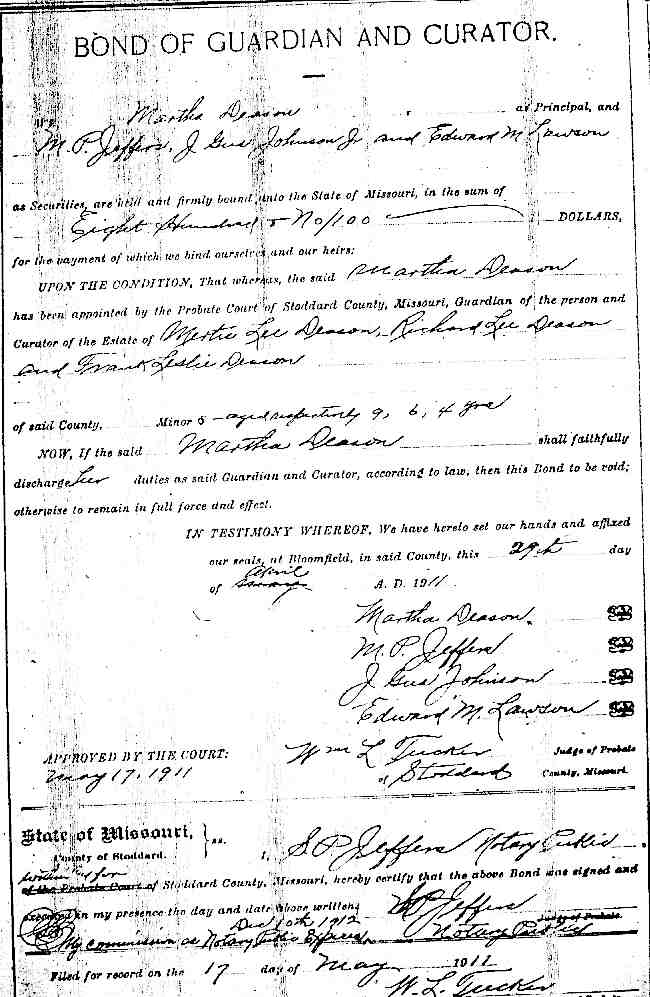 BOND OF GUARDIAN AND CURATOR.
We Martha Deason as Principal, and
M. P. Jeffers, J Gus Johnson Jr and Edward M Lawson
as Securities, are held and firmly bound unto the State of Missouri, in the sum of
Eight Hundred & No/100 DOLLARS,
for the payment of which we bind ourselves and our heirs:
UPON THE CONDITION, That whereas, the said Martha Deason
has been appointed by the Probate Court of Stoddard County, Missouri, Guardian of the person and
Curator of the Estate of Mertie Lee Deason, Richard Lee Deason
and Frank Leslie Deason
of said County, Minor s - aged respectively 9, 6, 4 yrs
NOW, If the said Martha Deason shall faithfully
discharge her duties as said Guardian and Curator, according to law, then this Bond to be void;
otherwise to remain in full force and effect.
IN TESTIMONY WHEREOF, We have hereto set our hands and affixed
our seals, at Bloomfield, in said County, this 29th day
of April A. D. 1911
Martha Deason.
M. P. Jeffers
J Gus Johnson
Edward M. Lawson
APPROVED BY THE COURT: Wm L Tucker Judge of Probate
May 17, 1911 of Stoddard County, Missouri.
State of Missouri, } ss.
County of Stoddard. I, S. P. Jeffers Notary Public
within and for
of the Probate Court of Stoddard County, Missouri, hereby certify that the above Bond was signed and
executed in my presence the day and date above written; S P Jeffers Judge of Probate
My commission as Notary Public Expires Dec 10th 1912 Notary Public
Filed for record on the 17 day of May 1911
W. L. Tucker